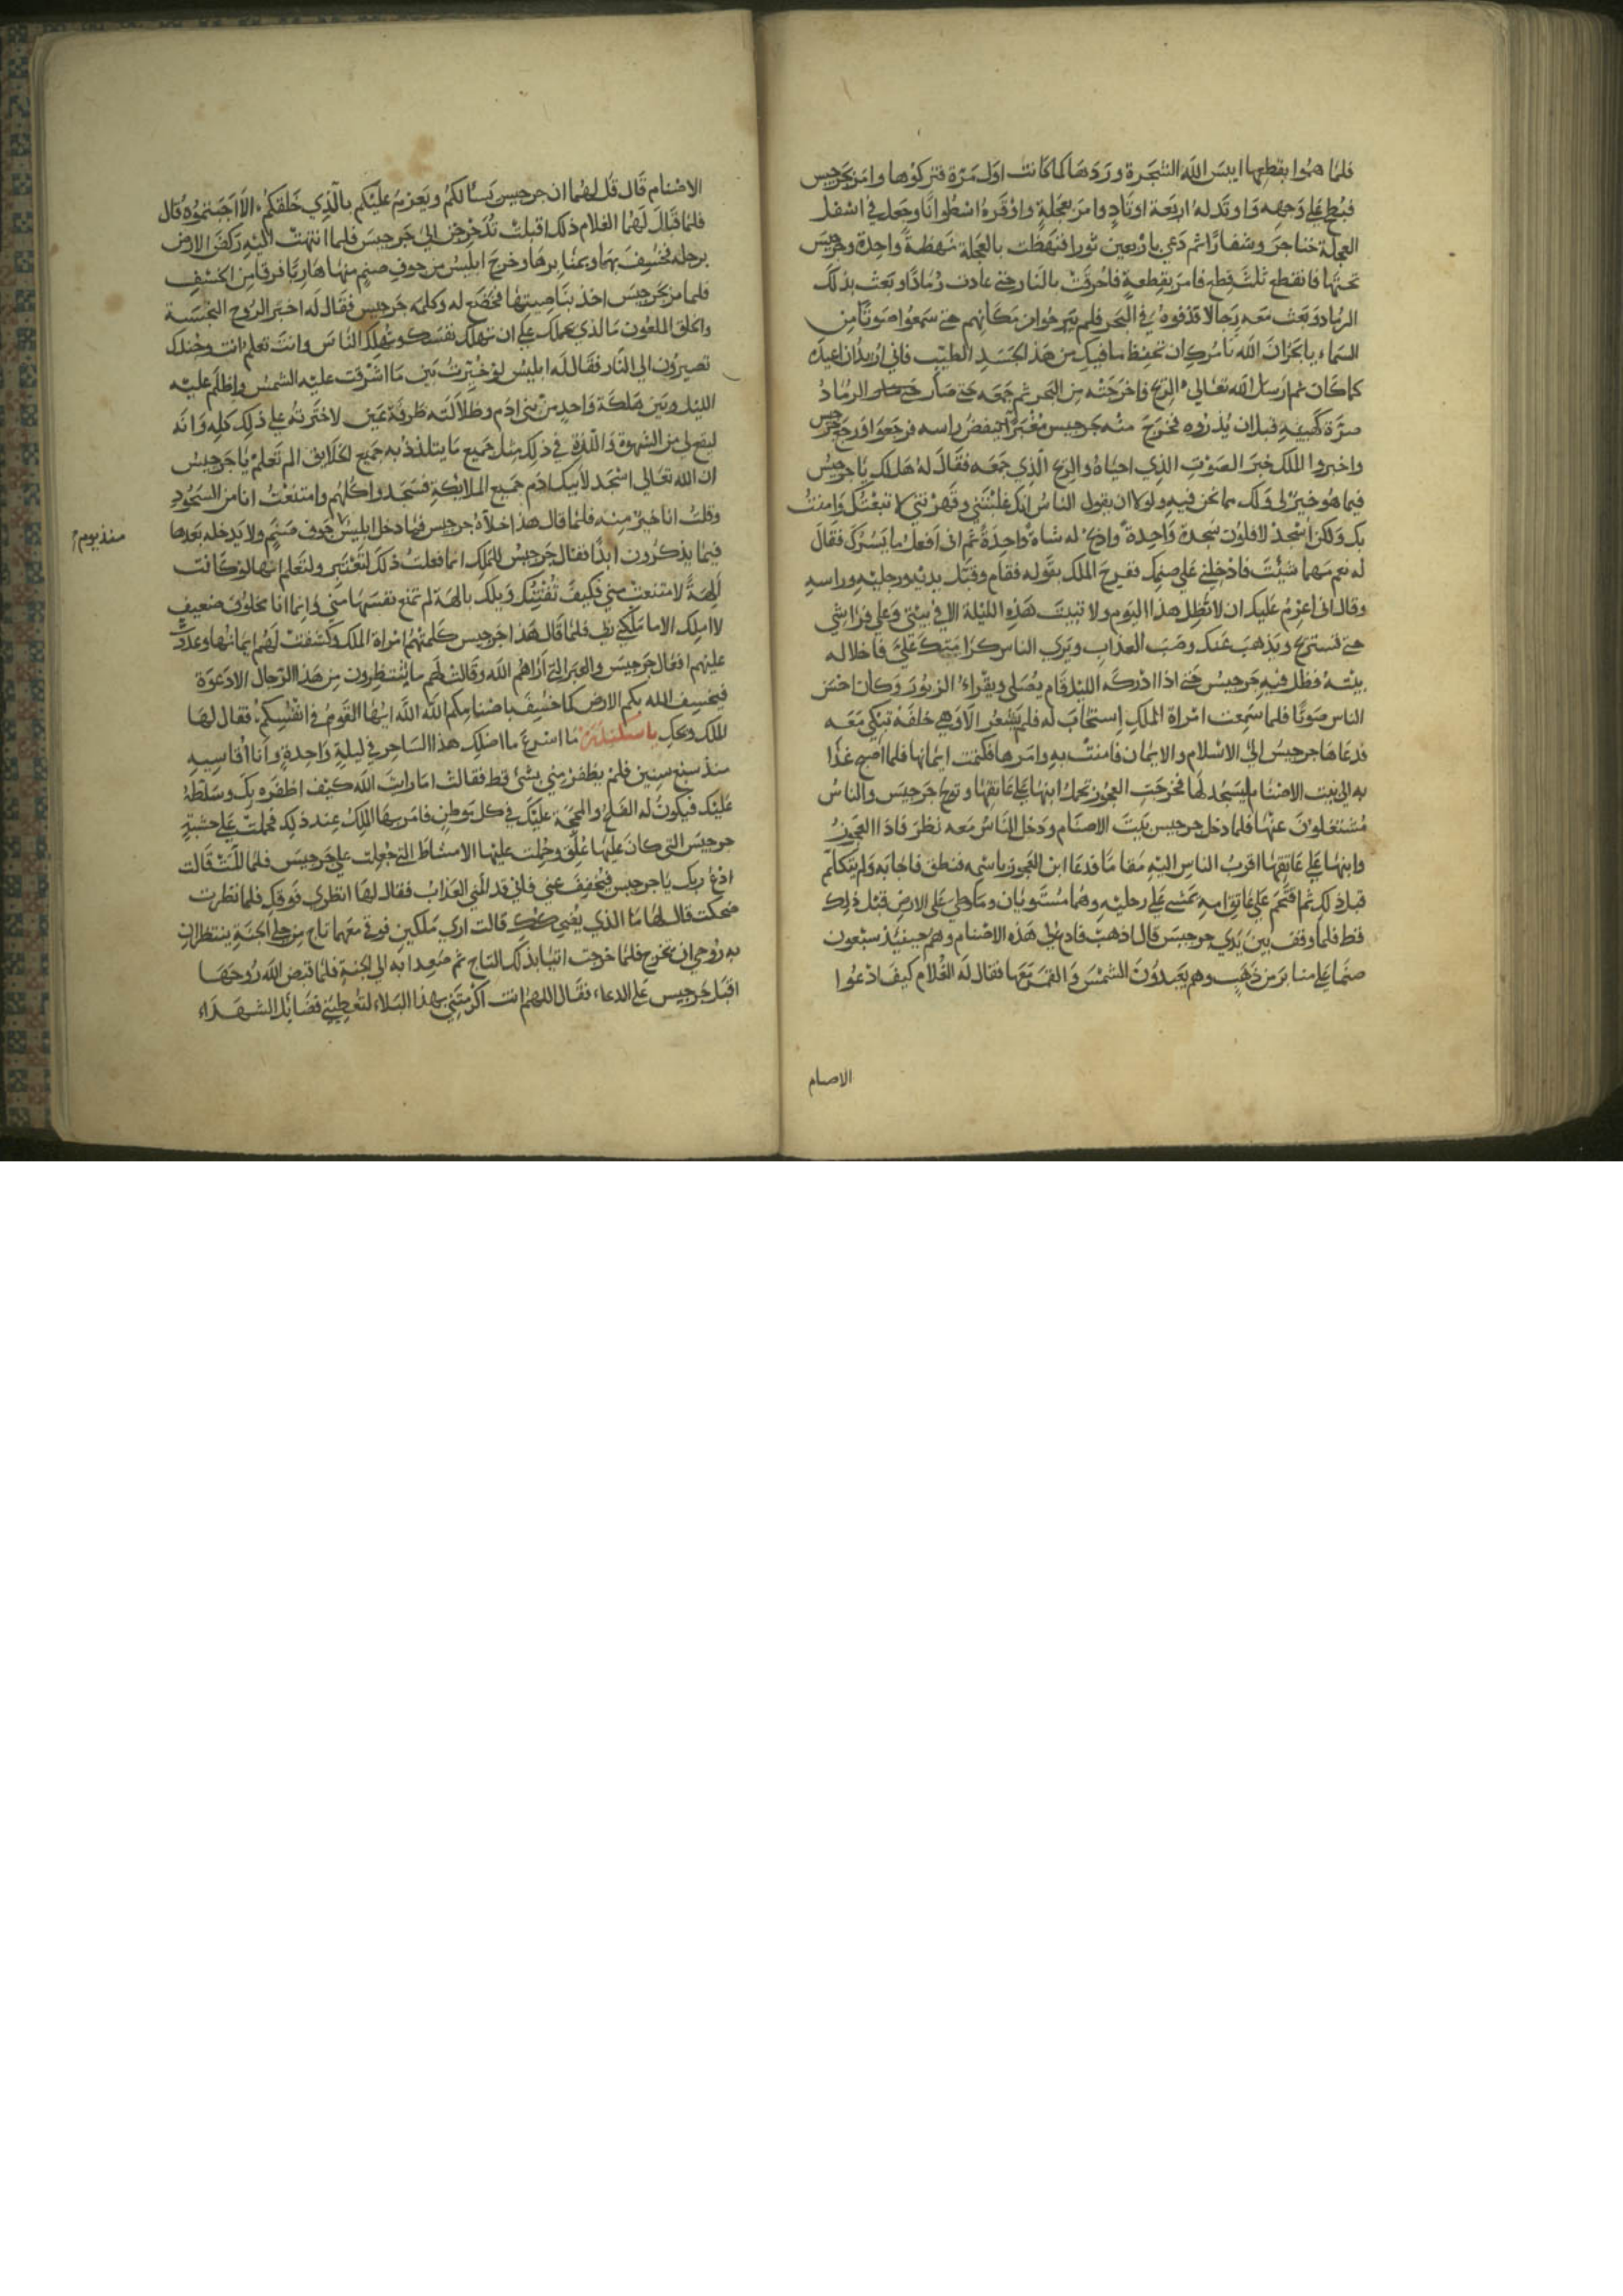 فلما هموا بقطعها ايبس الله الشجرة وردها لما كانت اول مرة فتركوها وامر بجرجيس
فبطح علي وجهه واوتد له اربعة اوتاد وامر بعجلة واوقره اسطوانا وجعل في اسفل
العجلة خناجر وشفارا ثم دعي باربعين ثورا فنهظت بالعجلة نهظة واحدة وجرجيس
تحتها فانقطع ثلث قطع فامر بقطعه فاحرقت بالنار حتي عادت رمادا وبعث بذلك
الرماد وبعث معه رجالا فذفوه في البحر فلم يبرحوا من مكانهم حتي سمعوا صوتا من
السماء يا بحر ان الله يامرك ان تحفظ ما فيك من هذا الجسد الطيب فاني اريد ان اعيده
كما كان ثم ارسل الله تعالي الريح فاخرجته من البحر ثم جمعه حتي صار الرماد
صبرة كهيئته قبل ان يذروه فخرج منه جرجيس مغبرا ينفض راسه فرجعوا ورجع جرجيس
واخبروا الملك خبر الصوت الذي احياه والريح الذي جمعه فقال له الملك هل لك يا جرجيس
فيما هو خير لي ولك مما نحن فيه ولولا ان يقول الناس انك غلبتني وقهرتني لا تبعتك وامنت
بك ولكن اسجد لافلون سجدة واحدة واذبح له شاة واحدة ثم اني افعل ما يسرك فقال
له نعم مهما شئت فادخلني علي صنمك ففرح الملك بقوله فقام وقبل يديه ورجليه وراسه
وقال اني اعزم عليك ان لا تظل هذا اليوم ولا تبيت هذه الليلة الا في بيتي وعلي فراشي
حتي تستريح ويذهب عنك وصب العذاب ويري الناس كرامتك علي فاخلا له
بيته فظل فيه جرجيس حتي اذا ادركه الليل قام يصلي ويقراء الزبور وكان احسن
الناس صوتا فلما سمعت امراة الملك استجاب له فلم يشعر الا وهي خلفه تبكي معه
فدعاها جرجيس الي الاسلام والايمان فامنت به وامرها فكتمت ايمانها فلما اصبح غدا
به الي بيت الاصنام ليسجد لها فخرجت العجوز تحمل ابنها علي عاتقها وتوبخ جرجيس والناس
مشتغلون عنها فلما دخل جرجيس بيت الاصنام ودخل الناس معه نظر فاذا العجوز
وابنها علي عاتقها اقرب الناس اليه مقاما فدعا ابن العجوز باسمه فنطق فاجابه ولم يتكلم
قبل ذلك ثم اقتحم علي عاتق امه يمشي علي رجليه وهما مستويان وما وطي علي الارض قبل ذلك
قط فلما وقف بين يدي جرجيس قال اذهب فادع لي هذه الاصنام وهم حينئذ سبعون
صنما علي منابر من ذهب وهم يعبدون الشمس والقمر معها فقال له الغلام كيف ادعوا
الاصنام
الاصنام قال قل لهما ان جرجيس يسالكم ويعزم عليكم بالذي خلقكم الا اجبتموه قال
فلما قال لهما الغلام ذلك اقبلت تدحرجن الي جرجيس فلما انتهت اليه ركض الارض
برجله فخسف بها وبمنابرها وخرج ابليس من جوف صنم منها هاربا فرقا من الخسف
فلما مر بجرجيس اخذ بناصيته فخضع له وكلمه جرجيس فقال له اخبر الروح النجسة
والخلق الملعون ما الذي يحملك علي ان تهلك نفسك وتهلك الناس وانت تعلم انت وجندك
تصيرون الي النار فقال له ابليس لو خيرت بين ما اشرقت عليه الشمس واظلم عليه
الليل وبين هلكة واحد من بني ادم وضلالته طرفة عين لاخترته علي ذلك كله وانه
ليقع لي من الشهوة واللذة في ذلك مثل جميع ما يتلذذ به جميع الخلايق الم تعلم يا جرجيس
ان الله تعالي اسجد لابيك ادم جميع الملائكة فسجدوا كلهم وامتنعت انا من السجود
وقلت انا خير منه فلما قال هذا اخلاه جرجيس فما دخل ابليس جوف صنم ولا يدخله بعدها
منذ يومئذ
فيما يذكرون ابدا فقال جرجيس للملك انما فعلت ذلك لتعتبر ولتعلم انها لو كانت
الهة لامتنعت مني فكيف ثقتك ويلك بالهة لم تمنع نفسها مني وانما انا مخلوق ضعيف
لا املك الا ما ملكني ربي فلما قال هذا جرجيس كلمتهم امراة الملك وكشفت لهم ايمانها وعددت
عليهم افعال جرجيس والعبر التي اراهم الله وقالت لهم ما تنتظرون من هذا الرجال الا دعوة
فيخسف الله بكم الارض كما خسف باصنامكم الله الله ايها القوم في انفسكم فقال لها
الملك ويحك يا ما اسرع ما اضلك هذا الساحر في ليلة واحدة وانا اقاسيه
منذ سبع سنين فلم يظفر مني بشئ قط فقالت اما رايت الله كيف اظفره بك وسلطه
عليك فيكون له الفلح والحجة عليك في كل موطن فامر بها الملك عند ذلك فحملت علي خشبة
جرجيس التي كان عليها علق وحملت عليها الامشاط التي جعلت علي جرجيس فلما المت قالت
ادع ربك يا جرجيس فيخفف عني فاني قد المني العذاب فقال لها انظري فوقك فلما نظرت
ضحكت قال لها ما الذي يضحكك قالت اري ملكين فوقي معهما تاج من حلي الجنة ينتظران
به روحي ان تخرج فلما خرجت اتيا بذلك التاج ثم صعدا به الي الجنة فلما قبض الله روحها
اقبل جرجيس علي الدعاء فقال اللهم انت اكرمتني بهذا البلاء لتعطيني فضائل الشهداء